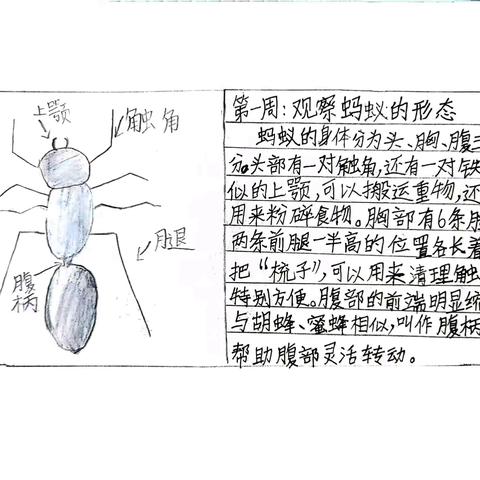 上颚
触角
腿
腹
柄
第一周:观察蚂蚁的形态
蚂蚁的身体分为头、胸、腹三
分。头部有一对触角,还有一对铁
似的上颚,可以搬运重物,还
用来粉碎食物。胸部有6条
两条前腿一半高的位置各长着
把“梳子”,可以用来清理触
特别方便。腹部的前端明显缩
与胡蜂、蜜蜂相似,叫作腹柄
帮助腹部灵活转动。